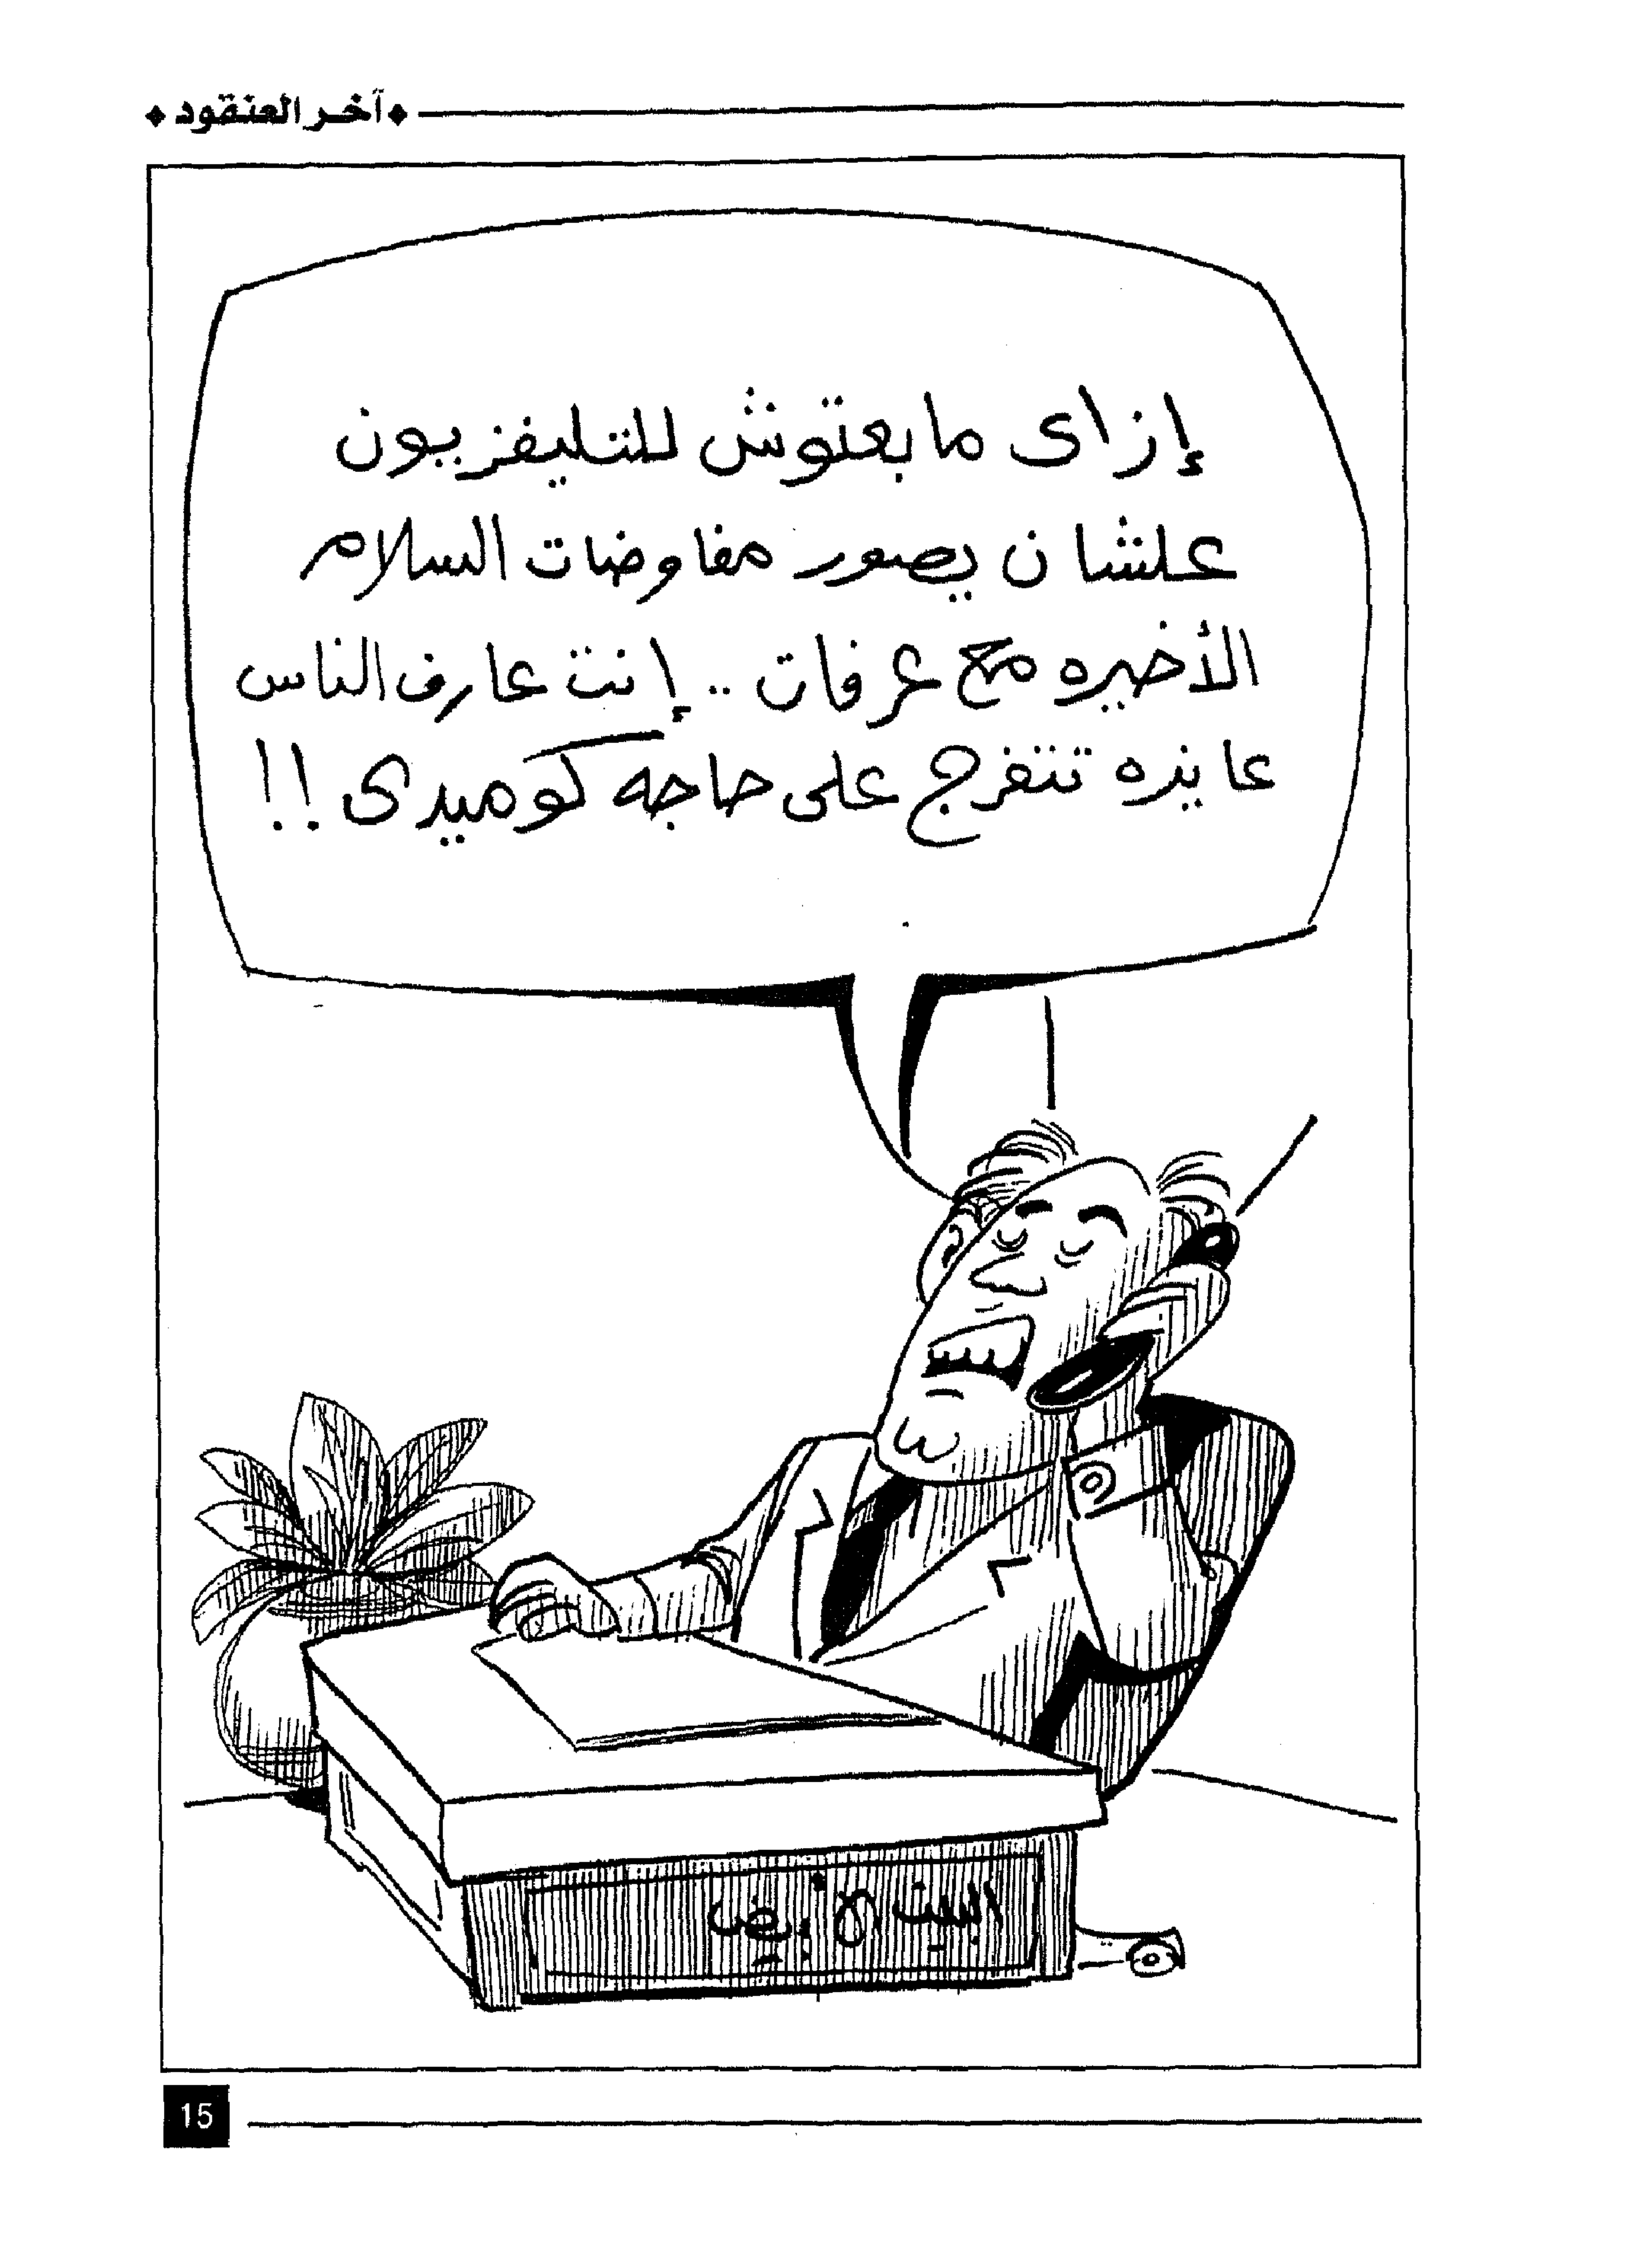 آخر العنقود
إزاى ما بعتوش للتليفزيون
علشان يصور مفاوضات السلام
الأخيره مع عرفات .. إنت عارف الناس
عايزه تتفرج على حاجه كوميدى !!
البيت الأبيض
15